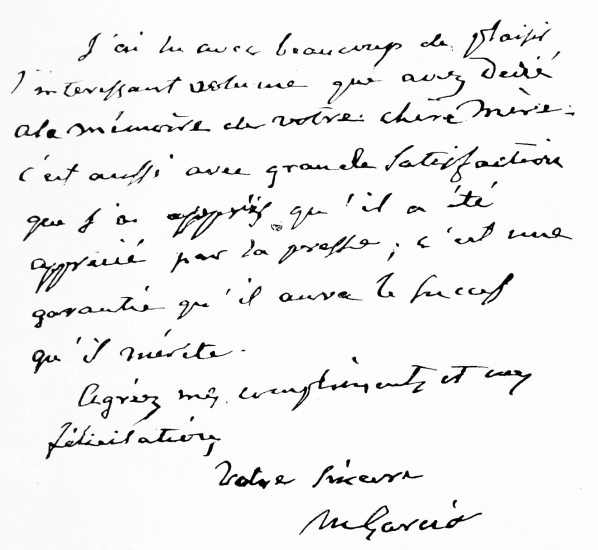 J'ai lu avec beaucoup de plaisir
l'interessant volume que avez dedié
a la mémoire de votre chère mère.
c'est aussi avec grande satisfaction
que j'ai appris qu'il a été
apprécié par la presse; c'est une
garantie qu'il aura le succes
qu'il mérite.
Agréez mes compliments et mes
félicitations
Votre sincere
M Garcia